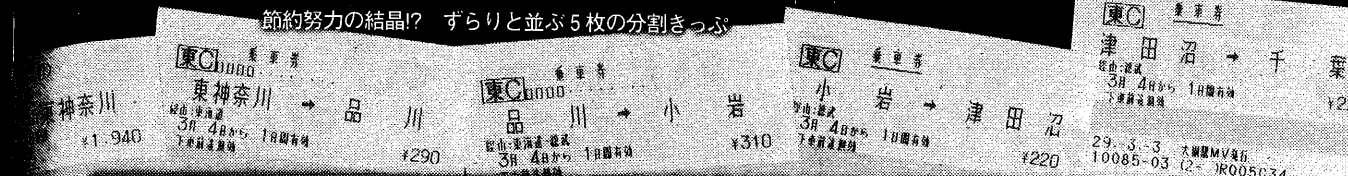 節約努力の結晶!? ずらりと並ぶ5枚の分割きっぷ
東神奈川
¥1,940
東C 乗車券
東神奈川 → 品川
経由:東海道
3月 4日から 1日間有効
下車前途無効
¥290
東C 乗車券
品川 → 小岩
経由:東海道・総武
3月 4日から 1日間有効
¥310
東C 乗車券
小岩 → 津田沼
経由:総武
3月 4日から 1日間有効
下車前途無効
¥220
東C 乗車券
津田沼 → 千葉
経由:総武
3月 4日から 1日間有効
下車前途無効
29.-3.-3
10085-03 (2- )R005C34